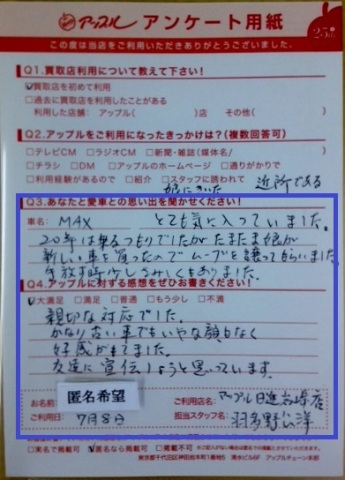 アップル アンケート用紙
この度は当店をご利用いただきありがとうございました。
Q1.買取店利用について教えて下さい!
☑買取店を初めて利用
□過去に買取店を利用したことがある
利用した店舗: アップル( )店 その他( )
Q2.アップルをご利用になったきっかけは?(複数回答可)
□テレビCM □ラジオCM □新聞・雑誌(媒体名/ )
□チラシ □DM □アップルのホームページ □通りがかりで
□利用経験があるので □紹介 □スタッフに誘われて
娘にきいた 近所である
Q3.あなたと愛車との思い出を聞かせください!
車名: MAX とても気に入っていました。
20年は乗るつもりでしたがたまたま娘が
新しい車を買ったのでムーブを譲ってもらいました
手放す時少しさみしくもありました。
Q4.アップルに対する感想をぜひお書きください!
☑大満足 □満足 □普通 □もう少し □不満
親切な対応でした。
かなり古い車でもいやな顔もなく
好感がもてました。
友達に宣伝しようと思っています。
お名前: 匿名希望
ご利用店名: アップル日進岩崎店
ご利用日: 7月8日
担当スタッフ名: 羽多野
□実名で掲載可 ☑匿名なら掲載可 □掲載不可
東京都千代田区神田佐木町 清水ビル6F アップルチェーン本部